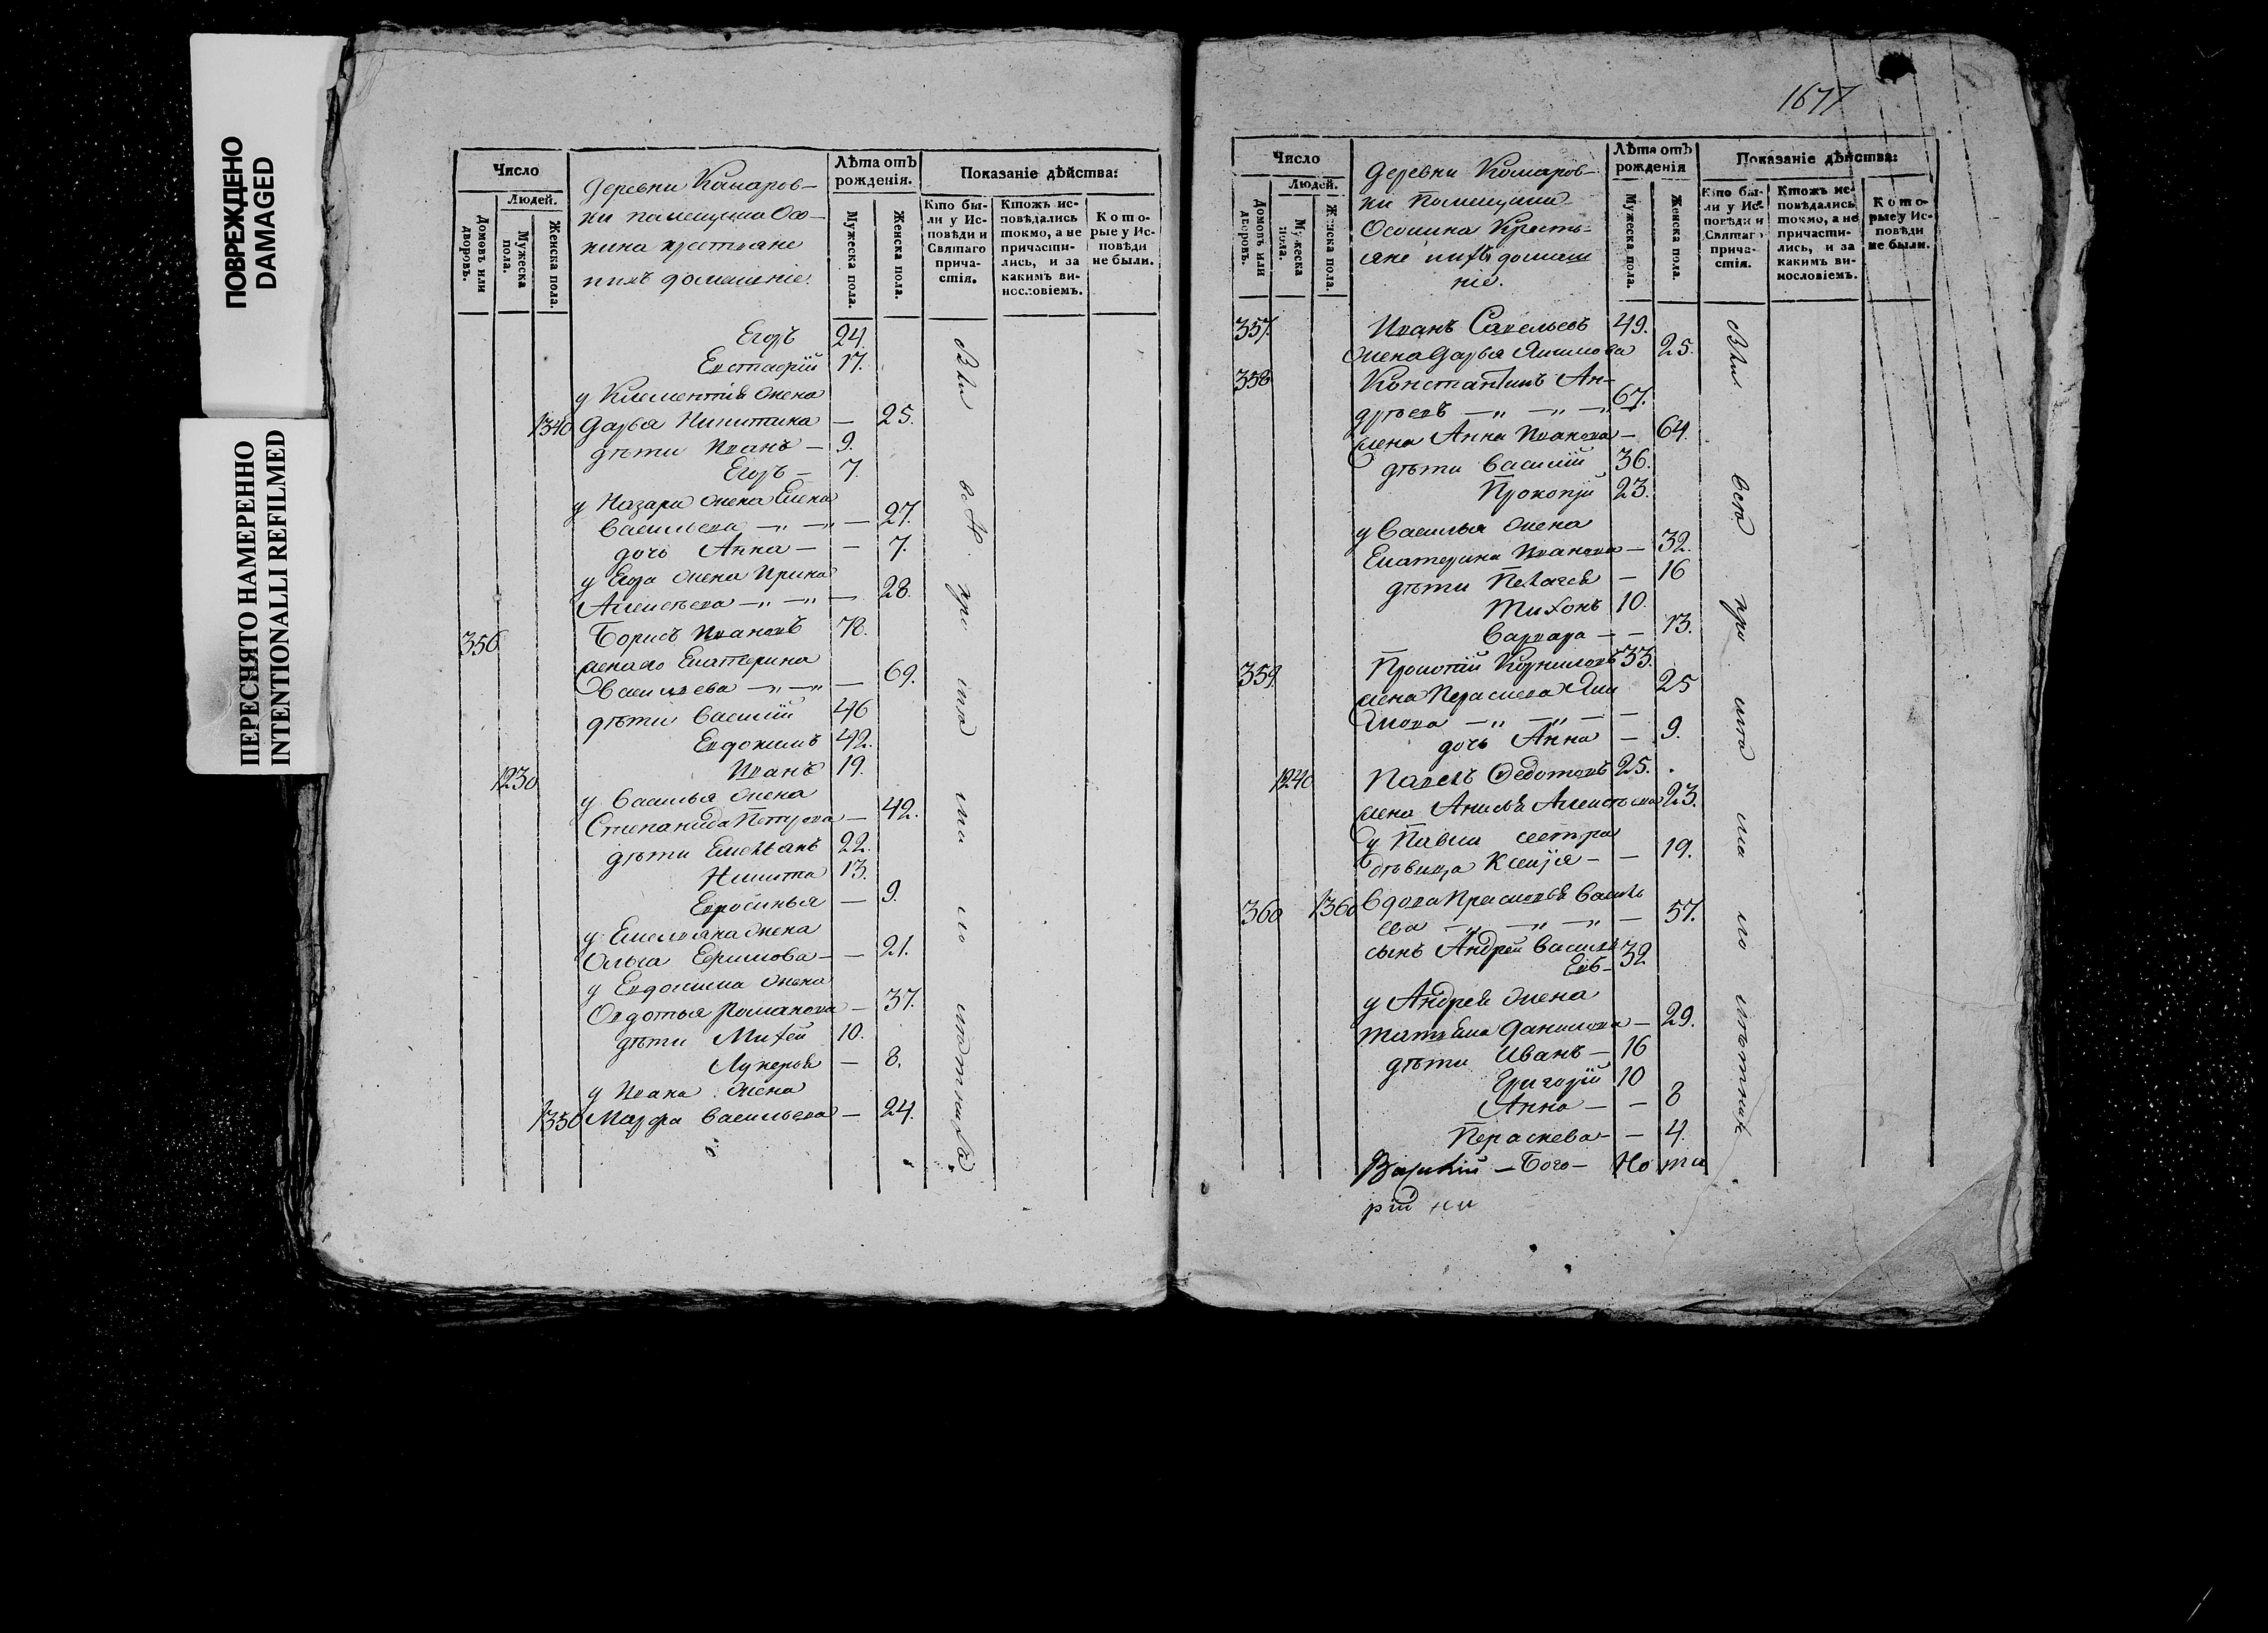 ПОВРЕЖДЕНО
DAMAGED
ПЕРЕСНЯТО НАМЕРЕННО
INTENTIONALLI REFILMED
Число
Людей.
Домовъ или дворовъ.
Мужеска пола.
Женска пола.
деревни Камаров-
ки помещика Осо-
кина крестьяне
и ихъ домашніе.
Лѣта отъ
рожденія.
Мужеска пола.
Женска пола.
Показаніе дѣйства:
Кто бы-
ли у Ис-
повѣди и
Святаго
прича-
стія.
Ктожъ ис-
повѣдались
токмо, а не
причасти-
лись, и за
какимъ ви-
нословіемъ.
Кото-
рые у Ис-
повѣди
не были.
Егоръ 24.
Евстафій 17.
у Клементія жена
1340 Дарья Никитина — 25.
дѣти Иванъ — 9.
Егоръ — 7.
у Назара жена Елена
Васильева — „ — „ — 27.
дочь Анна — — 7.
у Егора жена Ирина
Алексѣева — „ — „ — 28.
356 Борисъ Ивановъ 78.
жена его Екатерина
Васильева — „ — „ — 69.
дѣти Василій 46
Евдокимъ 42.
1230 Иванъ 19.
у Василья жена
Степанида Петрова — 42.
дѣти Емельянъ 22.
Никита 13.
Евросинья — 9.
у Емельяна жена
Ольга Ефимова — — 21.
у Евдокима жена
Овдотья Романова — 37.
дѣти Михей 10.
Лукерья — 8.
у Ивана жена
1350 Марфа Васильева — 24.
1677
Число
Людей.
Домовъ или дворовъ.
Мужеска пола.
Женска пола.
Деревни Комаров-
ки Помещика
Осокина Кресть-
яне ихъ домаш
ніе.
Лѣта отъ
рожденія
Мужеска пола.
Женска пола.
Показаніе дѣйства:
Кто бы-
ли у Ис-
повѣди и
Святаго
прича-
стія.
Ктожъ ис-
повѣдались
токмо, а не
причасти-
лись, и за
какимъ ви-
нословіемъ.
Кото-
рые у Ис-
повѣди
не были.
357. Иванъ Савельевъ 49.
жена Дарья Якимова 25.
358 Константинъ Ан-
дреевъ — „ — „ — „ 67.
жена Анна Иванова — 64.
дѣти Василій 36.
Прокопій 23.
у Василья жена
Екатерина Иванова — 32.
дѣти Пелагея — 16
Тихонъ 10.
Варвара — — 13.
359. Прокопій Корниловъ 33.
жена Пераскева Яки 25
мова — „ — „ — —
дочь Анна — 9.
1240 Павелъ Федотовъ 25.
жена Анисья Алексѣева 23.
у Павла сестра
дѣвица Ксенія — — 19.
360 1360 Вдова Прасковья Василь
ева — „ — „ — „ — 57.
сынъ Андрей Василь
евъ — 32
у Андрея жена
Татьяна Данилова — 29.
дѣти Иванъ — 16
Григорій 10
Анна — — 8
Пераскева — — 4.